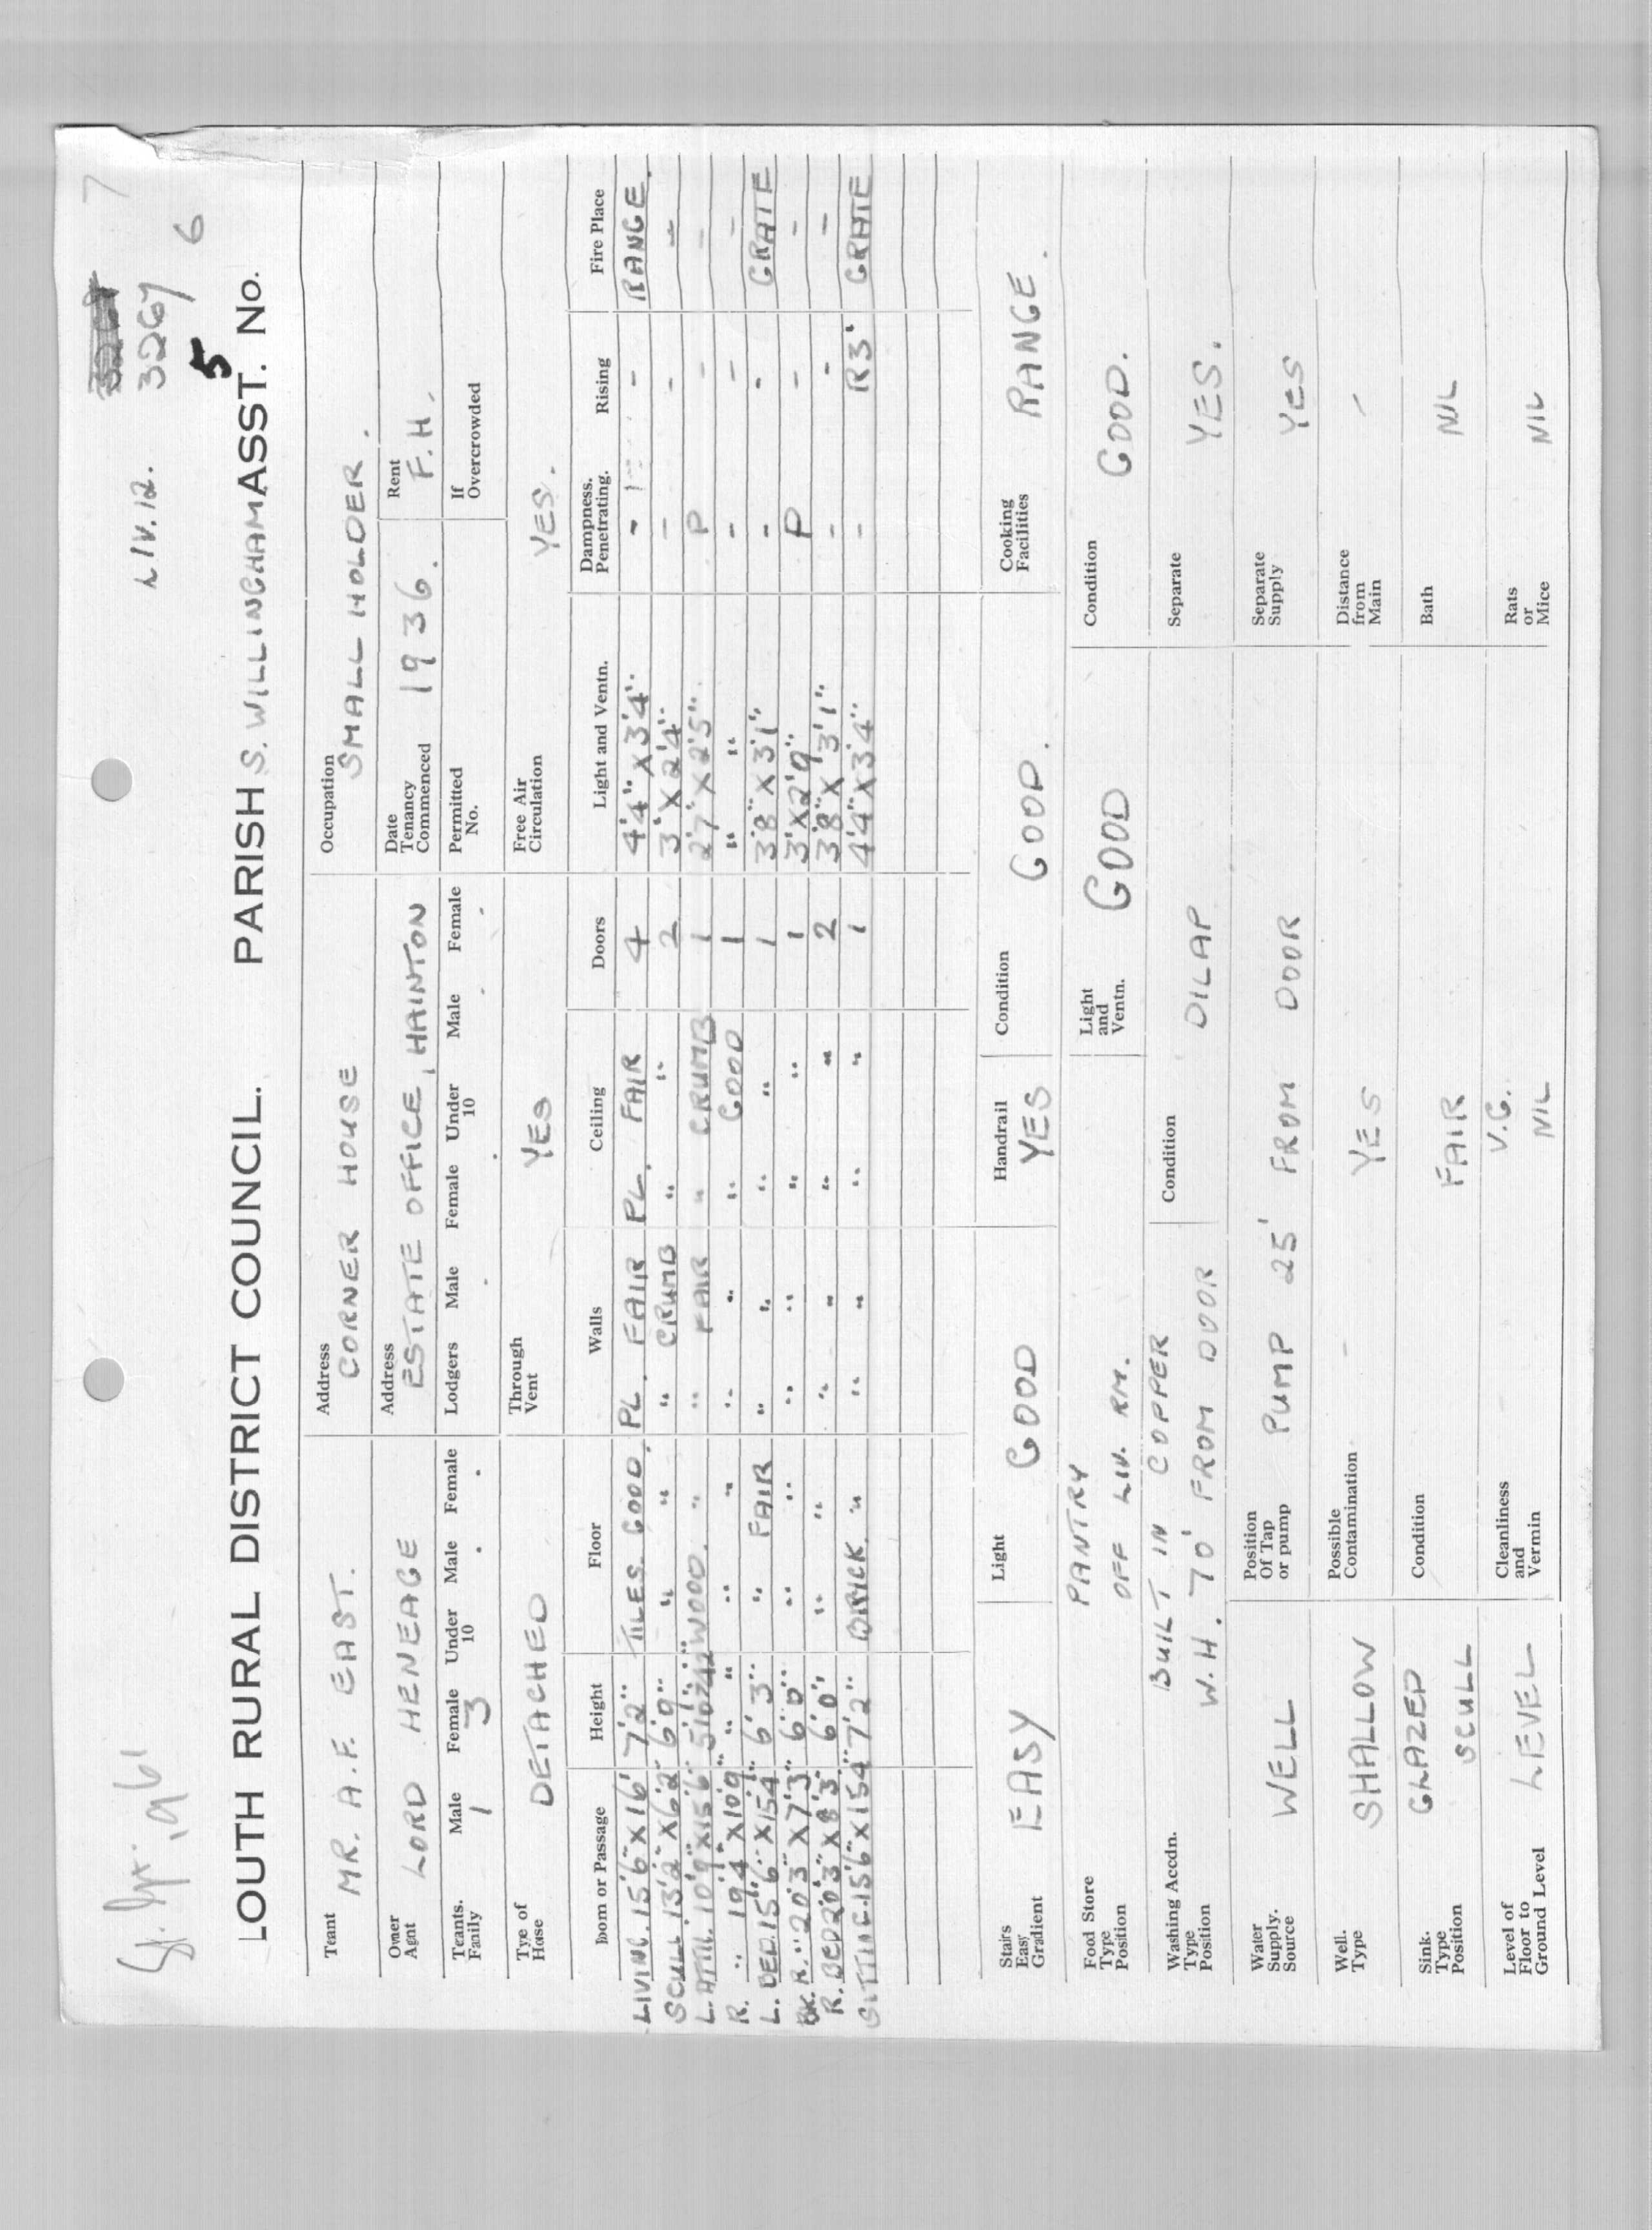 7
3267
LIV.12.
5 6
LOUTH RURAL DISTRICT COUNCIL. PARISH S. WILLINGHAM ASST. No.
Teant MR. A.F. EAST. Address CORNER HOUSE Occupation SMALL HOLDER.
Owner Agnt LORD HENEAGE Address ESTATE OFFICE, HAINTON Date Tenancy Commenced 1936. Rent F.H.
Teants. Fanily Male 1 Female 3 Under 10 Male . Female . Lodgers Male . Female . Under 10 Male . Female . Permitted No. If Overcrowded
Tye of Hase DETACHED Through Vent YES Free Air Circulation YES.
Ioom or Passage Height Floor Walls Ceiling Doors Light and Ventn. Dampness. Penetrating. Rising Fire Place
LIVING. 15'6" X 16' 7'2" TILES GOOD. PL. FAIR PL. FAIR 4 4'4" X 3'4" - - RANGE.
SCULL. 13'2" X 6'2" 6'9" " " " CRUMB " " 2 3' X 2'4" - - -
L. ATTIC. 10'9" X 15'6" WOOD. " " FAIR " CRUMB 1 2'7" X 2'5" P - -
R. " 19'4" X 10'9" " " " " " " " GOOD 1 " " - - -
L. BED. 15'6" X 15'4" 6'3" " FAIR " " " " 1 3'8" X 3'1" - - GRATE
BK. R. " 20'3" X 7'3" 6'0" " " " " " " 1 3' X 2'9" P - -
R. BED 20'3" X 8'3" 6'0" " " " " " " 2 3'8" X 3'1" - - -
SITTING. 15'6" X 15'4" 7'2" BRICK. " " " " " 1 4'4" X 3'4" - R3' GRATE
Stairs Easy Gradient EASY Light GOOD Handrail YES Condition GOOD. Cooking Facilities RANGE.
Food Store Type Position PANTRY OFF LIV. RM. Light and Ventn. GOOD Condition GOOD.
Washing Accdn. Type Position BUILT IN COPPER W.H. 70' FROM DOOR Condition DILAP Separate YES.
Water Supply. Source WELL Position Of Tap or pump PUMP 25' FROM DOOR Separate Supply YES
Well. Type SHALLOW Possible Contamination YES Distance from Main -
Sink. Type Position GLAZED SCULL Condition FAIR Bath NIL
Level of Floor to Ground Level LEVEL Cleanliness and Vermin V.G. NIL Rats or Mice NIL